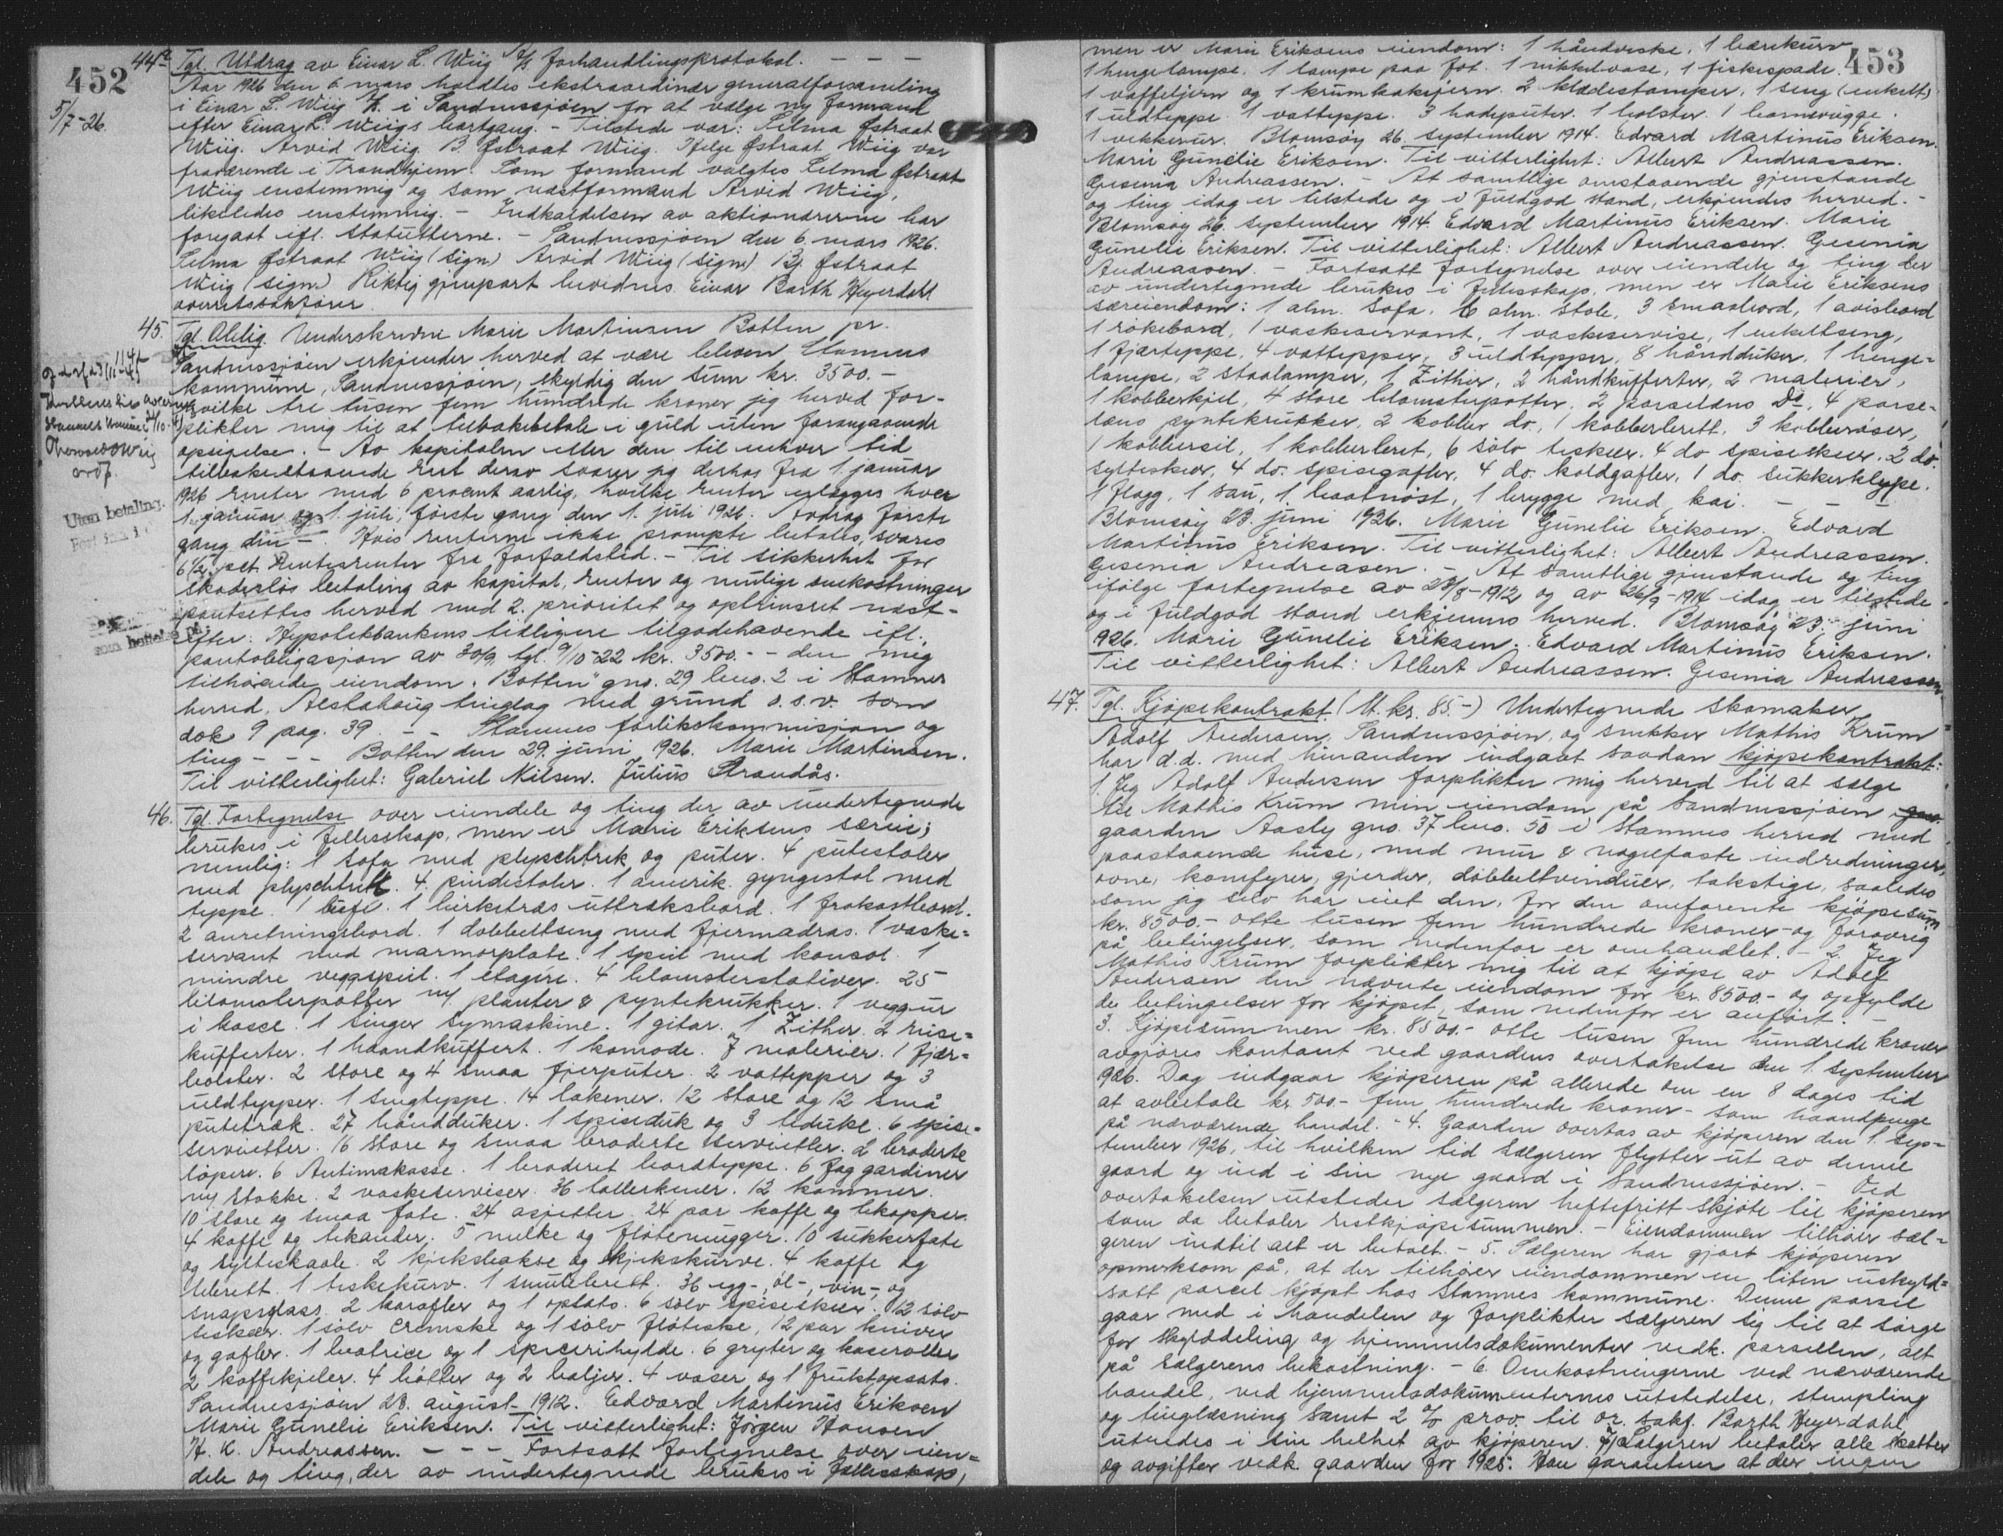 452
5/7-26.
44a Tgl. Utdrag av Einar L. Wiig A/S forhandlingsprotokol. - - -
Aar 1926 den 6 mars holdtes ekstraordinær generalforsamling
i Einar L. Wiig A/S. i Sandnessjøen for at vælge ny formand
efter Einar L. Wiigs bortgang. - Tilstede var: Selma Østraat
Wiig. Arvid Wiig. B. Østraat Wiig. Helge Østraat Wiig var
fraværende i Trondhjem. Som formand valgtes Selma Østraat
Wiig enstemmig og som næstformand Arvid Wiig,
likeledes enstemmig. - Indkaldelsen av aktionærerne har
foregaat ifl. statutterne. - Sandnessjøen den 6. mars 1926.
Selma Østraat Wiig (sign) Arvid Wiig (sign) Bj. Østraat
Wiig (sign) Riktig gjenpart bevidnes Einar Barth Heyerdahl
overretssakfører
45. Tgl. Oblig. Underskrevne Marie Martinsen Botten pr.
Sandnessjøen erkjender herved at være bleven Stamnes
kommune, Sandnessjøen, skyldig den sum kr. 3500.-
hvilke tre tusen fem hundrede kroner jeg herved for-
plikter mig til at tilbakebetale i guld uten foregaaende
opsigelse. - Av kapitalen eller den til enhver tid
tilbakestaaende rest derav svarer jeg derhos fra 1. januar
1926 renter med 6 procent aarlig, hvilke renter erlægges hver
1. januar og 1. juli, første gang den 1. juli 1926. Avdrag første
gang den - Hvis renterne ikke prompte betales, svares
6½ pct. rentesrenter fra forfaldstid. - Til sikkerhet for
skadesløs betaling av kapital, renter og mulige omkostninger
pantsettes herved med 2. prioritet og optrinsret næst-
efter: Hypotekbankens tidligere tilgodehavende ifl.
pantobligasjon av 30/9 tgl. 9/10-22 kr. 3500.- - den mig
tilhørende eiendom "Botten" gno. 29 bno. 2 i Stamnes
herred, Alstahoug tinglag med grund o.s.v. som
dok 9 pag. 39 - - Stamnes forlikskommisjon og
ting - - - Botten den 29. juni 1926. Marie Martinsen.
Til vitterlighet: Gabriel Nilsen. Julius Strandås.
Uten betaling.
46. Tgl. Fortegnelse over eiendele og ting der av undertegnede
brukes i fellesskap, men er Marie Eriksens særeie;
nemlig: 1 sofa med plyschtrek og puter. 4 putestoler
med plyschtrekk. 4 pindestoler. 1 amerik. gyngestol med
teppe. 1 bufe. 1 birketræs uttræksbord. 1 frokostbord.
2 anretningsbord. 1 dobbeltseng med fjermadras. 1 vaske-
servant med marmorplate. 1 speil med konsol. 1
mindre veggspeil. 1 etagere. 4 blomsterstativer. 25
blomsterpotter m/ planter & pyntekrukker. 1 veggur
i kasse. 1 singer symaskine. 1 gitar. 1 Zither. 2 reise-
kufferter. 1 haandkuffert. 1 komode. 7 malerier. 1 fjær-
bolster. 2 store og 4 smaa fjerputer. 2 vattepper og 3
uldtepper. 1 sengteppe. 14 lakener. 12 store og 12 små
putetræk. 27 håndduker. 1 spiseduk og 3 teduke. 6 spise-
servietter. 16 store og smaa broderte servietter. 2 broderte
løpere. 6 Antimakasse. 1 broderet bordteppe. 6 fag gardiner
m/ stokke. 2 vaskeserviser. 36 tallerkener. 12 kammer.
10 store og smaa fate. 24 asjetter. 24 par kaffe og tekopper.
4 kaffe og tekander. 5 melke og fløtemugger. 10 sukkerfate
og sylteskaale. 2 kjeksbakse og kjekskurve. 4 kaffe og
tebrett. 1 teskekurv. 1 smulebrett. 36 egg-, øl-, vin- og
snapsglass. 2 karafler og 1 oplats. 6 sølv spiseskeer. 12 sølv
teskeer. 1 sølv cremske og 1 sølv fløteske, 12 par kniver
og gafler. 1 bealrice og 1 spicerihylde. 6 gryter og kaseroller
2 kaffekjeler. 4 bøtter og 2 baljer. 4 vaser og 1 fruktopsats.
Sandnessjøen 28. august 1912. Edvard Martinus Eriksen
Marie Gunelie Eriksen. Til vitterlighet: Jørgen Hansen
H. K. Andreassen. - - - Fortsatt fortegnelse over eien-
dele og ting, der av undertegnede brukes i fellesskap,
453
men er Marie Eriksens eiendom: 1 håndveske, 1 bærekurv
1 hengelampe. 1 lampe paa fot. 1 nikkelvase, 1 fiskespade.
1 vaffeljern og 1 krumkakejern. 2 klædestamper, 1 seng (enkelt)
1 uldteppe. 1 vatteppe. 3 hodeputer. 1 bolster. 1 barnevugge.
1 vekkerur. Blomsøy 26. september 1914. Edvard Martinus Eriksen.
Marie Gunelie Eriksen. Til vitterlighet: Albert Andreassen.
Gesenia Andreassen. - At samtlige omstaaende gjenstande
og ting idag er tilstede og i fuldgod stand, erkjendes herved. -
Blomsøy 26. september 1914. Edvard Martinus Eriksen. Marie
Gunelie Eriksen. Til vitterlighet: Albert Andreassen. Gesenia
Andreassen. - Fortsatt fortegnelse over eiendele og ting der
av undertegnede brukes i fellesskap, men er Marie Eriksens
særeiendom: 1 alm. sofa. 6 alm. stole, 3 smaabord, 1 avisbord
1 røkebord, 1 vaskeservant, 1 vaskeservise, 1 enkeltseng,
1 fjærteppe, 4 vattepper, 3 uldtepper, 8 håndduker, 1 henge-
lampe, 2 staalamper, 1 Zither, 2 håndkufferter, 2 malerier,
1 kobberkjel, 4 store blomsterpotter, 2 porselæns Do, 4 porse-
læns pyntekrukker, 2 kobber do, 1 kobberbrett, 3 kobbervaser,
1 kobbersil, 1 kobberbret, 6 sølv teskeer. 4 do spiseskeer. 2 do.
sylteskeer, 4 do. spisegafler, 4 do. koldgafler, 1 do. sukkerklype.
1 flagg, 1 sau, 1 baatnøst, 1 brygge med kai. - - -
Blomsøy 23. juni 1926. Marie Gunelie Eriksen. Edvard
Martinus Eriksen. Til vitterlighet: Albert Andreassen.
Gesenia Andreasen. - At samtlige gjenstande og ting
ifølge fortegnelse av 28/8-1912 og av 26/9-1914 idag er tilstede
og i fuldgod stand erkjennes herved. Blomsøy 23. juni
1926. Marie Gunelie Eriksen. Edvard Martinus Eriksen.
Til vitterlighet: Albert Andreassen. Gesenia Andreassen
47. Tgl. Kjøpekontrakt (M. kr. 85.-) Undertegnede skomaker
Adolf Andersen, Sandnessjøen, og snekker Mathis Krum
har d.d. med hinanden indgaat saadan kjøpekontrakt:
1. Jeg Adolf Andersen forplikter mig herved til at sælge
til Mathis Krum min eiendom på Sandnessjøen
gaarden Aasly gno. 37 bno. 50 i Stamnes herred med
paastaaende huse, med mur & naglefaste indredninger,
ovne, komfyrer, gjerder, dobbeltvinduer, takstige, saaledes
som jeg selv har eiet den, for den omforente kjøpesum
kr. 8500.- otte tusen fem hundrede kroner - og forøvrig
på betingelser, som nedenfor er omhandlet. - 2. Jeg
Mathis Krum forplikter mig til at kjøpe av Adolf
Andersen den nævnte eiendom for kr. 8500.- og opfylde
de betingelser for kjøpet, som nedenfor er anført. -
3. Kjøpesummen kr. 8500.- otte tusen fem hundrede kroner
avgjøres kontant ved gaardens overtakelse den 1. september
1926. Dog indgaar kjøperen på allerede om en 8 dages tid
at avbetale kr. 500.- fem hundrede kroner - som haandpenge
på nærværende handel. - 4. Gaarden overtas av kjøperen den 1. sep-
tember 1926, til hvilken tid sælgeren flytter ut av denne
gaard og ind i sin nye gaard i Sandnessjøen. - Ved
overtakelsen utsteder sælgeren heftefritt skjøte til kjøperen
som da betaler restkjøpesummen. - Eiendommen tilhører sæl-
geren indtil alt er betalt. - 5. Sælgeren har gjort kjøperen
opmerksom på, at der tilhører eiendommen en liten uskyld-
satt parcel kjøpt hos Stamnes kommune. Denne parsel
gaar med i handelen og forplikter sælgeren sig til at sørge
for skylddeling og hjemmelsdokumenter vedk. parsellen, alt
på sælgerens bekostning. - 6. Omkostningerne ved nærværende
handel, ved hjemmelsdokumenternes utstedelse, stempling
og tinglæsning samt 2 % prov. til or. sakf. Barth Heyerdahl
utredes i sin helhet av kjøperen. 7/ Sælgeren betaler alle skatter
og avgifter vedk. gaarden for 1925. Han garanterer at der ingen